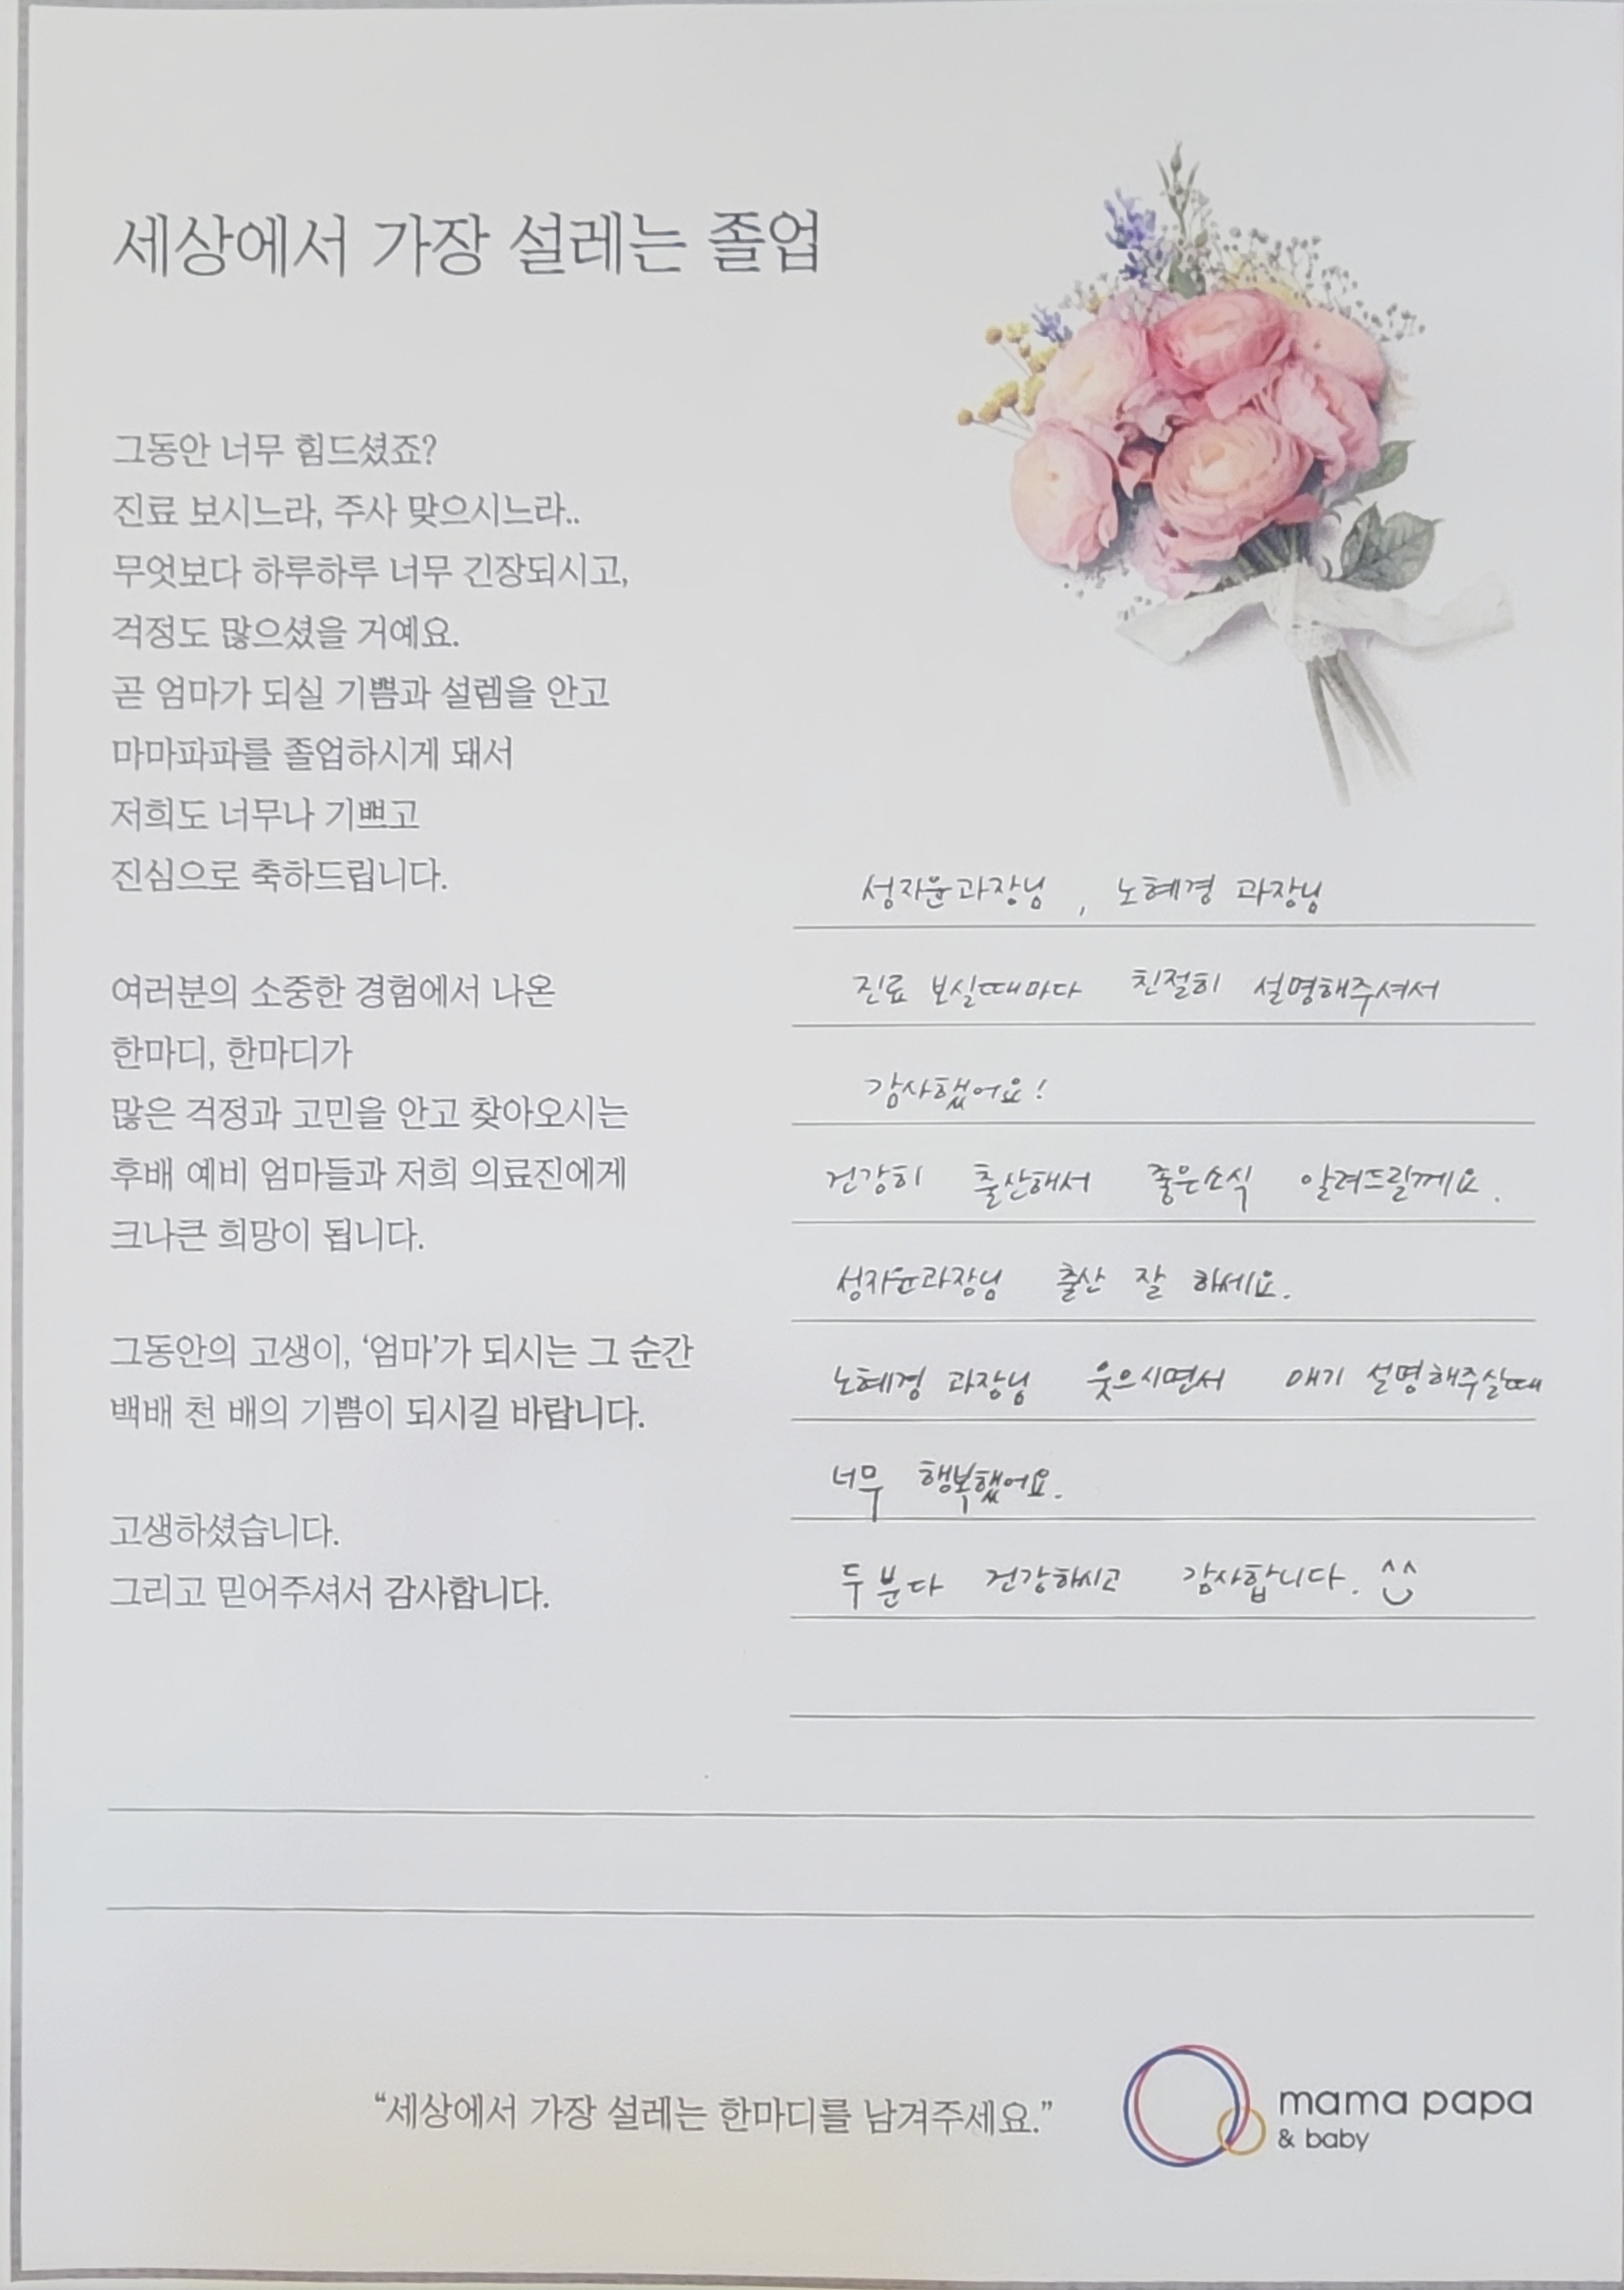 세상에서 가장 설레는 졸업
그동안 너무 힘드셨죠?
진료 보시느라, 주사 맞으시느라..
무엇보다 하루하루 너무 긴장되시고,
걱정도 많으셨을 거예요.
곧 엄마가 되실 기쁨과 설렘을 안고
마마파파를 졸업하시게 돼서
저희도 너무나 기쁘고
진심으로 축하드립니다.
여러분의 소중한 경험에서 나온
한마디, 한마디가
많은 걱정과 고민을 안고 찾아오시는
후배 예비 엄마들과 저희 의료진에게
크나큰 희망이 됩니다.
그동안의 고생이, ‘엄마’가 되시는 그 순간
백배 천 배의 기쁨이 되시길 바랍니다.
고생하셨습니다.
그리고 믿어주셔서 감사합니다.
성자윤과장님, 노혜경 과장님
진료 보실때마다 친절히 설명해주셔서
감사했어요!
건강히 출산해서 좋은소식 알려드릴께요.
성자윤과장님 출산 잘 하세요.
노혜경 과장님 웃으시면서 애기 설명해주실때
너무 행복했어요.
두분다 건강하시고 감사합니다. ^^
“세상에서 가장 설레는 한마디를 남겨주세요.”
mama papa
& baby